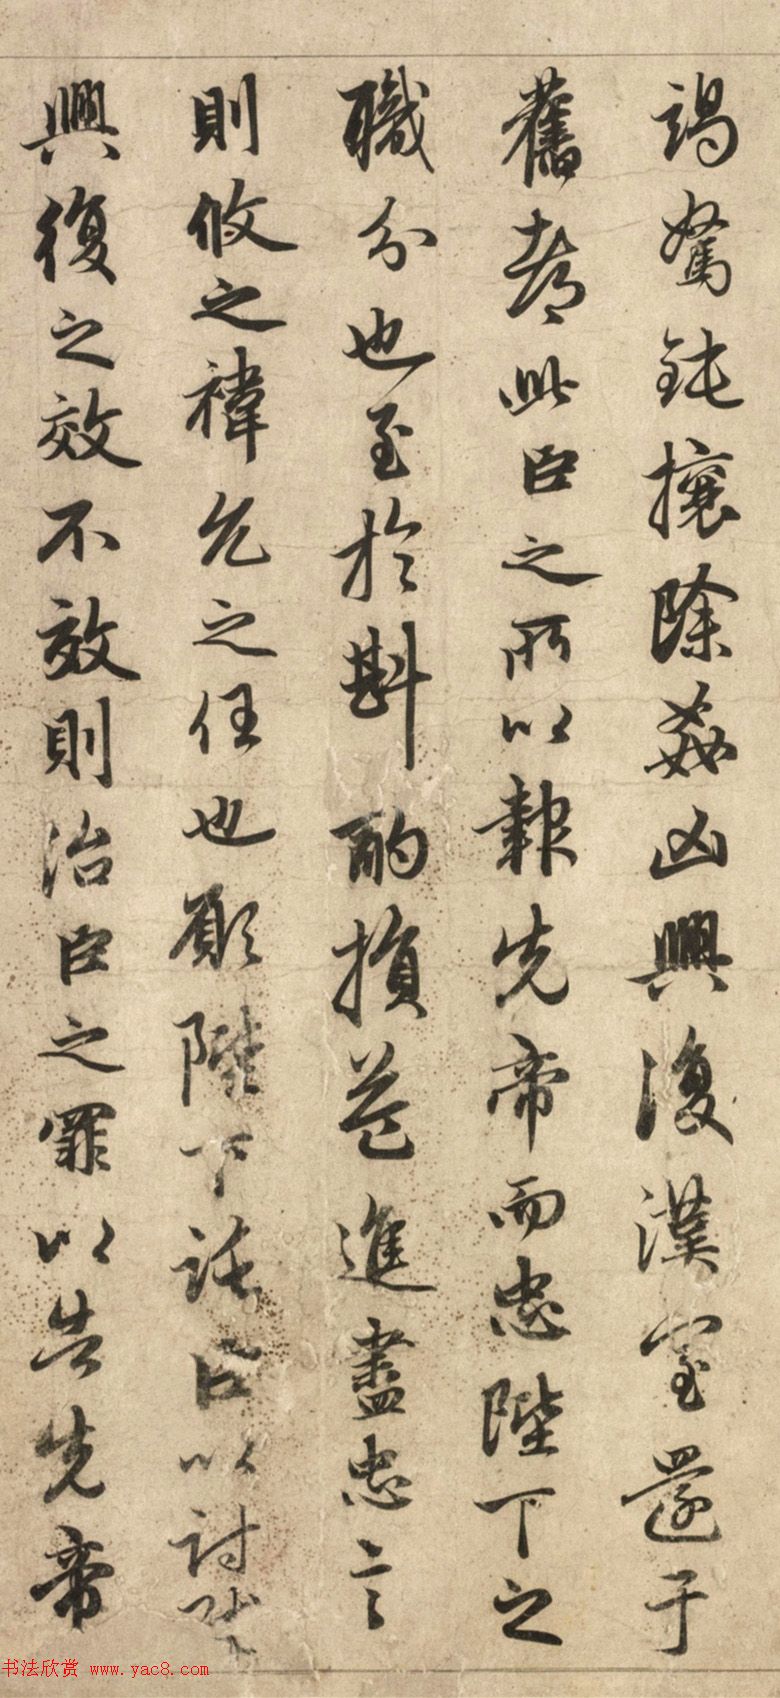 竭駑鈍攘除姦凶興復漢室還于
舊都此臣之所以報先帝而忠陛下之
職分也至於斟酌損益進盡忠言
則攸之禕允之任也願陛下託臣以討賊
興復之效不效則治臣之罪以告先帝
书法欣赏 www.yac8.com